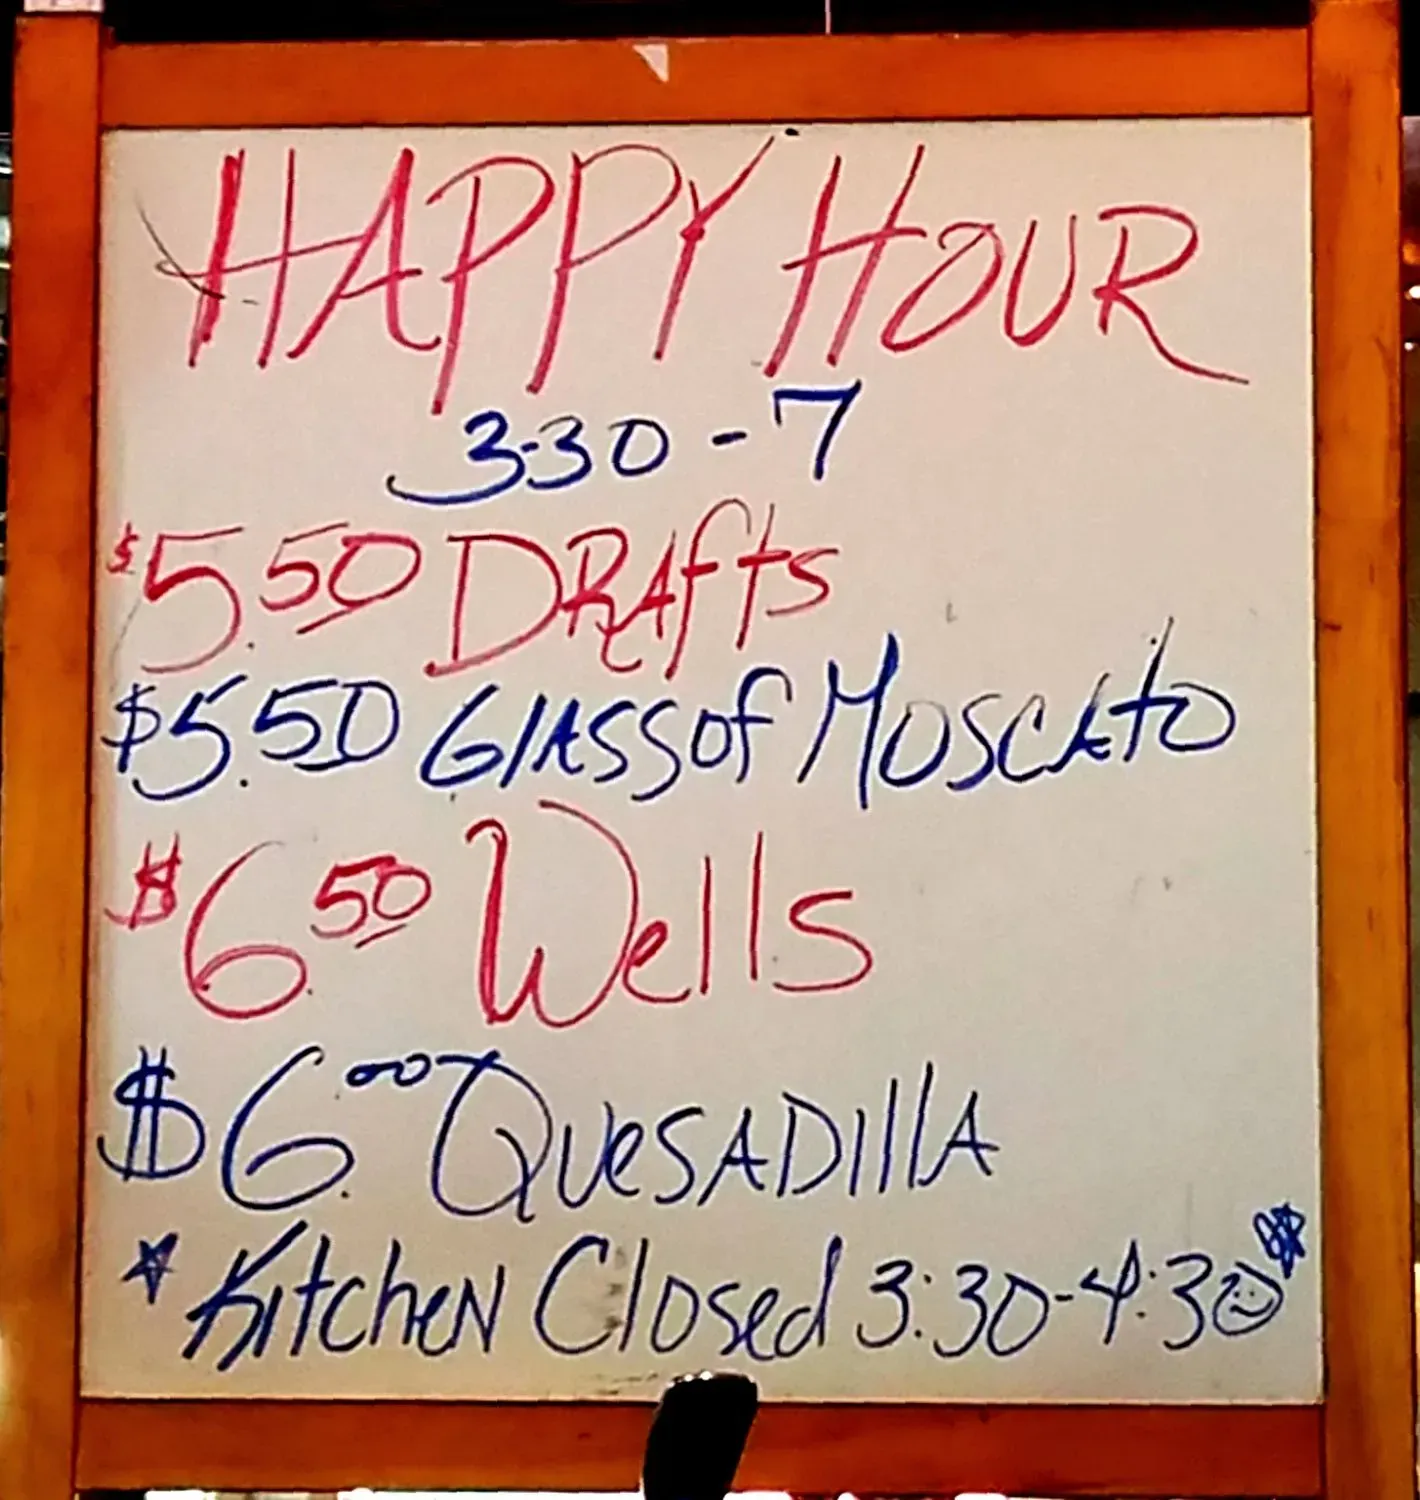 HAPPY HOUR
3:30 - 7
$5.50 DRAfts
$5.50 GlASS of MOSCAtO
$6.50 Wells
$6.00 QUeSADIllA
KitcheN Closed 3:30-4:30